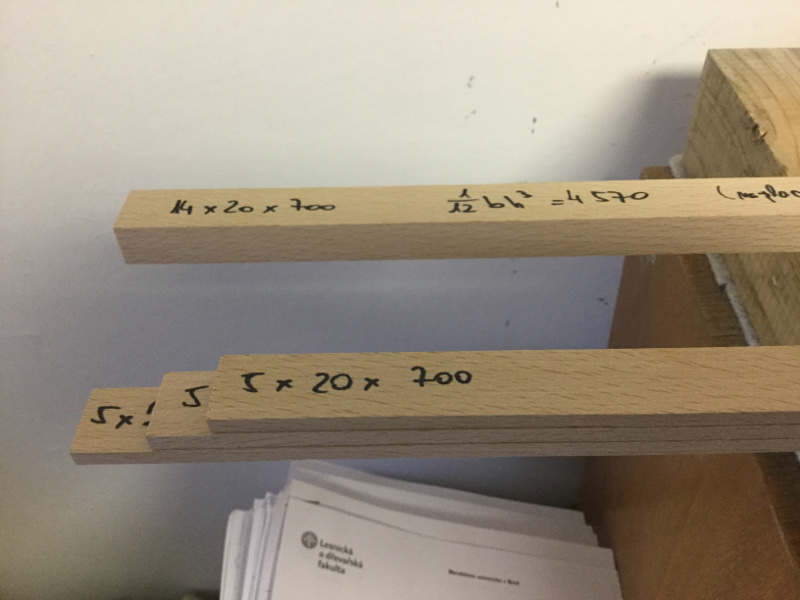 14 x 20 x 700
1/12 bh³ = 4570
5 x 20 x 700
5
5 x
Lesnická
a dřevařská
fakulta
Mendelova univerzita v Brně